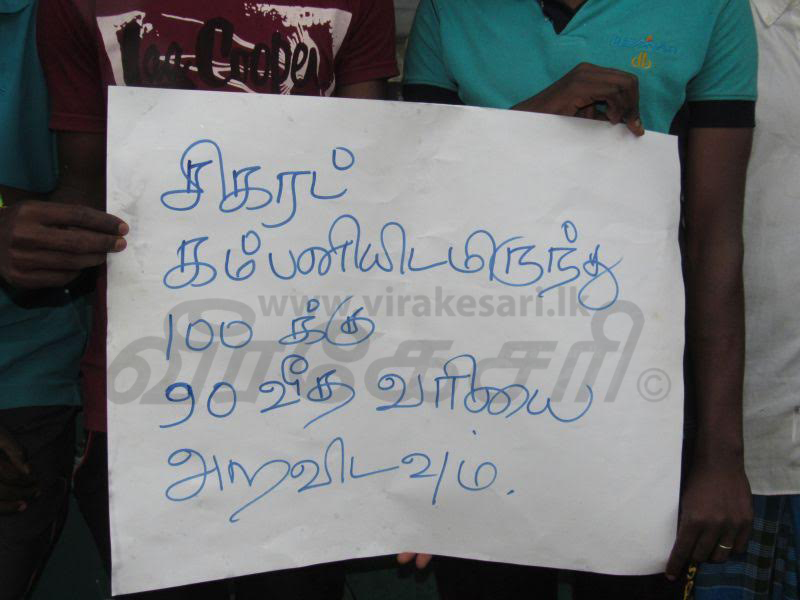 Lee Cooper
சிகரட்
கம்பனியிடமிருந்து
www.virakesari.lk
100 க்கு
வீரகேசரி ©
90 வீத வரியை
அறவிடவும்.